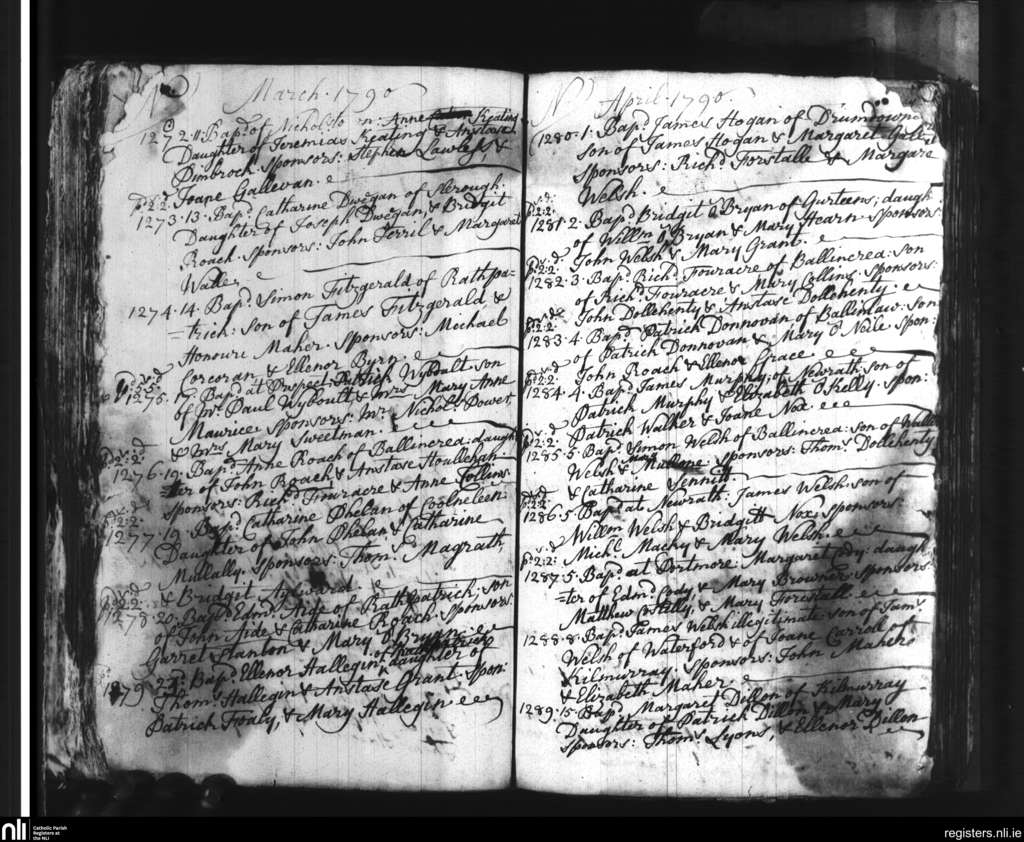 No March. 1790
1272. 11. Bapd of Nichols to n: Anne Keating
Daughter of Jeremias Keating & Anstase
Dimbrock. Sponsors: Stephen Lawless, &
Joane Gallevan.
pd 2:2.
1273. 13. Bapd Catharine Dwegan of Slerough.
Daughter of Joseph Dwegan, & Bridgit
Roach. Sponsors: John Terril & Margaret
Walle
1274. 14. Bapd Simon Fitzgerald of Rathpa=
=trich: son of James Fitzgerald &
Honoure Maher. Sponsors: Michael
Corcoran & Ellenor Byrn.
1275. 17. Bapd at Prospect: Patrich Wyboult son
of Mr Paul Wyboult & Mrs Mary Anne
Maurice Sponsors: Mr Nichols Power
& Mrs Mary Sweetman.
1276. 19. Bapd Anne Roach of Ballincrea: daugh
=ter of John Roach & Anstase Houllehan
Sponsors: Richd Fouracre & Anne Collins.
pd 2:2.
1277. 19. Bapd Catharine Phelan of Coolneleen
Daughter of John Phelan & Catharine
Mullally. Sponsors: Thoms Magrath,
& Bridgit Aylward.
pd 2:2.
1278. 20. Bapd Edmd Aide of Rathpatrich, son
of John Aide & Catharine Roach. Sponsors:
Garret Stanton & Mary O Bryan.
1279. 22. Bapd Ellenor Hallegin daughter of
Thoms Hallegin & Anstase Grant. Spon:
Patrich Foaly, & Mary Hallegin
No April. 1790.
1280. 1. Bapd James Hogan of Drumdowne
son of James Hogan & Margaret
Sponsors: Richd Forstalle & Margare
Welsh.
pd 2:2.
1281. 2. Bapd Bridgit O Bryan of Gurteens; daugh
of Willm O Bryan & Mary Hearn Sponsors:
John Welsh & Mary Grant.
pd 2:2.
1282. 3. Bapd Richd Fouracre of Ballincrea: son
of Richd Fouracre & Mary Collins Sponsors:
John Dollehenty & Anstase Dollehenty.
pd 2:2.
1283. 4. Bapd Patrich Donnovan of Ballinlaw: son
of Patrich Donnovan & Mary O Neile Spon:
John Roach & Ellenor Grace
pd 2:2.
1284. 4. Bapd James Murphy; of Newrath; son of
Patrich Murphy & Elizabeth O Kelly. Spon:
Patrich Walker & Joane Nox.
pd 2:2.
1285. 5. Bapd Simon Welsh of Ballincrea: son of Willm
Welsh & Malone: Sponsors: Thoms Dollehenty
& Catharine Sennett.
pd 2:2.
1286. 5. Bapd at Newrath. James Welsh. son of
Willm Welsh & Bridgitt Nox; Sponsors:
Michl Machy & Mary Welsh.
pd 2:2:
1287. 5. Bapd at Portmore: Margaret Cody: daugh
=ter of Edmd Cody, & Mary Browner: Sponsors:
Matthew O Kelly, & Mary Forestall
1288. 8. Bapd James Welsh illegitimate son of Jams
Welsh of Waterford & of Joane Carroll of
Kilmurray. Sponsors: John Maher
& Elizabeth Maher.
1289. 15. Bapd Margaret Dillon of Kilmurray
Daughter of Patrich Dillon & Mary
Sponsors: Thoms Lyons, & Ellenor Dillon
nli
Catholic Parish
Registers at
the NLI
registers.nli.ie